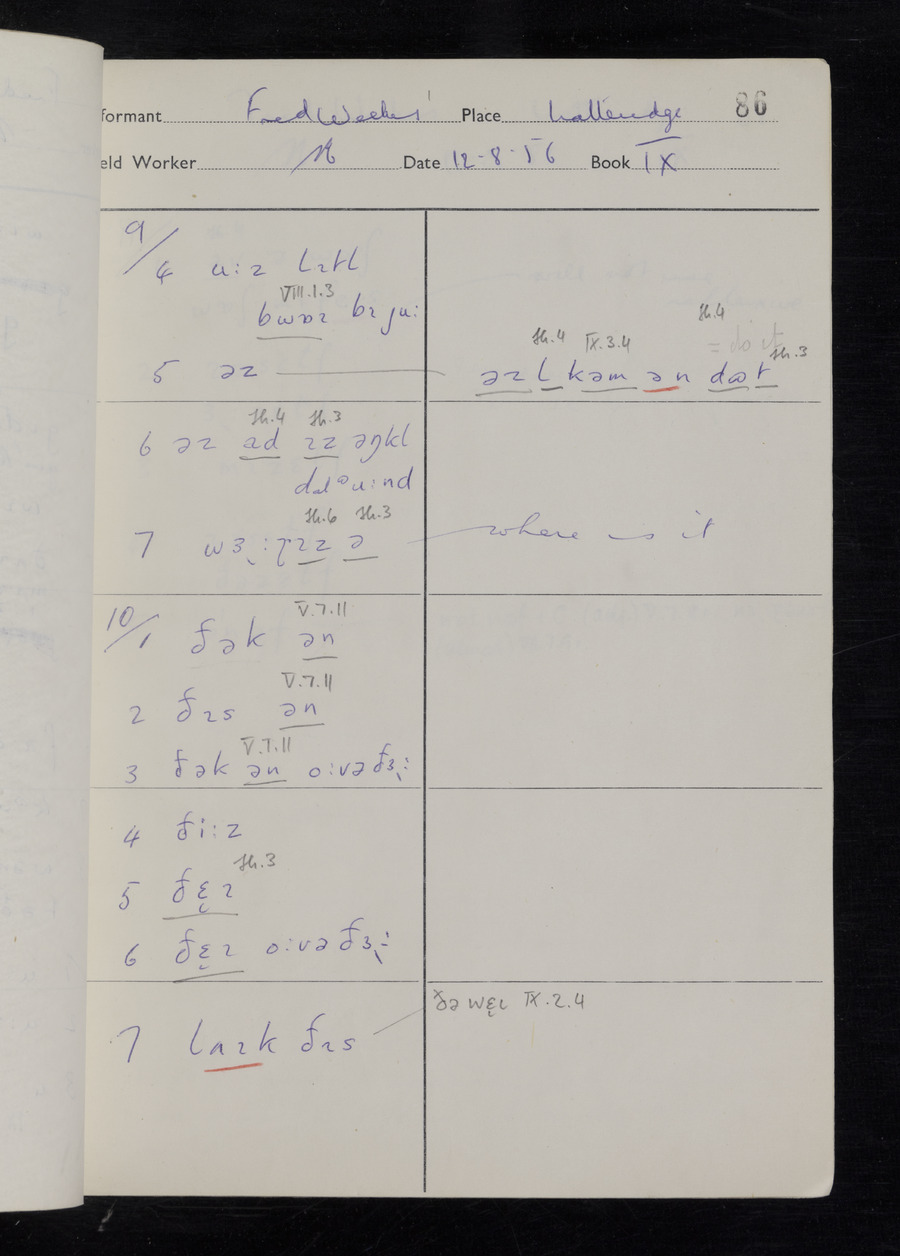 formant Fred Weeks Place Latteridge 86
eld Worker Date 12-8-56 Book IX
9/4 u:z lɪtl
VIII.1.3
bwɒɪ bɪ ju:
sh.4
sh.4 IX.3.4 = do it sh.3
5 əz əzl kəm ən dət
sh.4 sh.3
6 əz ad ɪz əŋkl
sh.6 sh.3
7 where is it
V.7.11
10/1 ðək ən
V.7.11
2 ðɪs ən
V.7.11
3 ðək ən o:və ðɜ:
4 ði:z
sh.3
5 ðɛɪ
6 ðɛɪ o:və ðɜ:
ðə wɛɩ IX.2.4
7 laɪk ðɪs